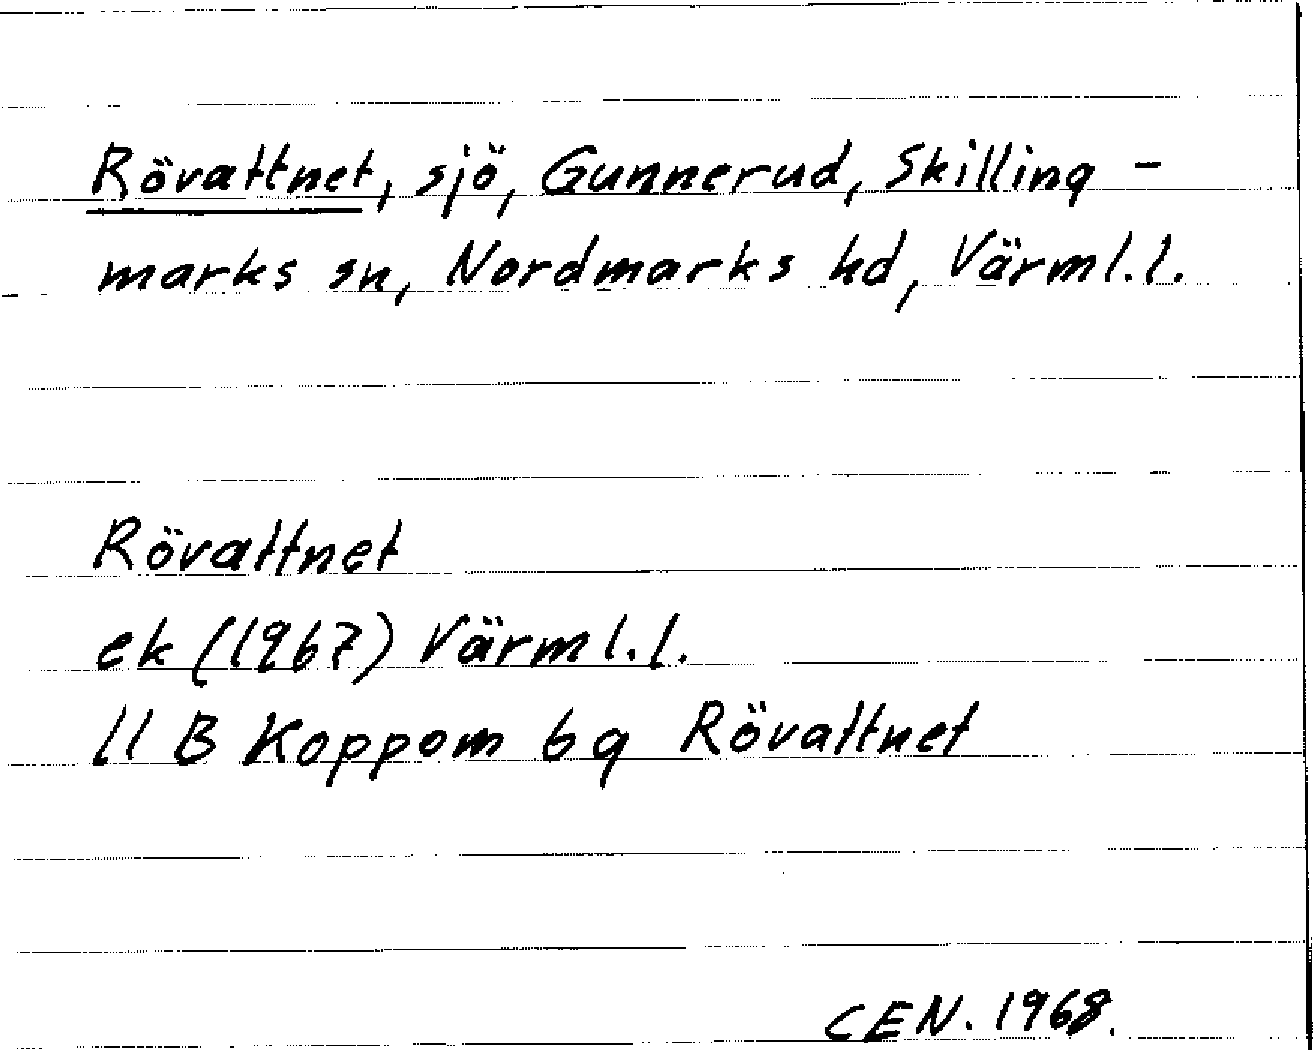 Rövattnet, sjö, Gunnerud, Skilling-
marks sn, Nordmarks hd, Värml.l.
Rövattnet
ek (1967) Värml.l.
11 B Koppom 6g Rövattnet
CEN. 1968.